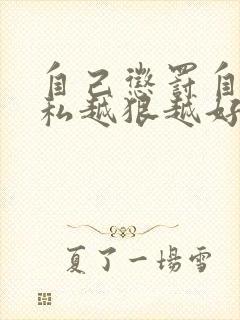 自己惩罚自
私越狠越好
夏了一場雪